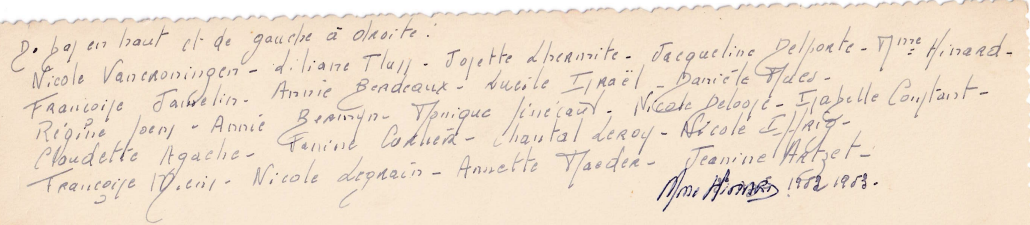 De bas en haut et de gauche à droite :
Nicole Vancroningen - Liliane Fluss - Josette Lhermite - Jacqueline Delporte - Mme Hinard -
Françoise Jamelin - Annie Berdeaux - Lucile Israël - Danièle
Régine Joens - Annie - Monique - Nicole Deloose - Isabelle Constant -
Claudette Agache - Janine - Chantal Leroy - Nicole
Françoise - Nicole Legrain - Annette Maeder - Jeanine Artzet -
Mme Hinard 1952 1953.